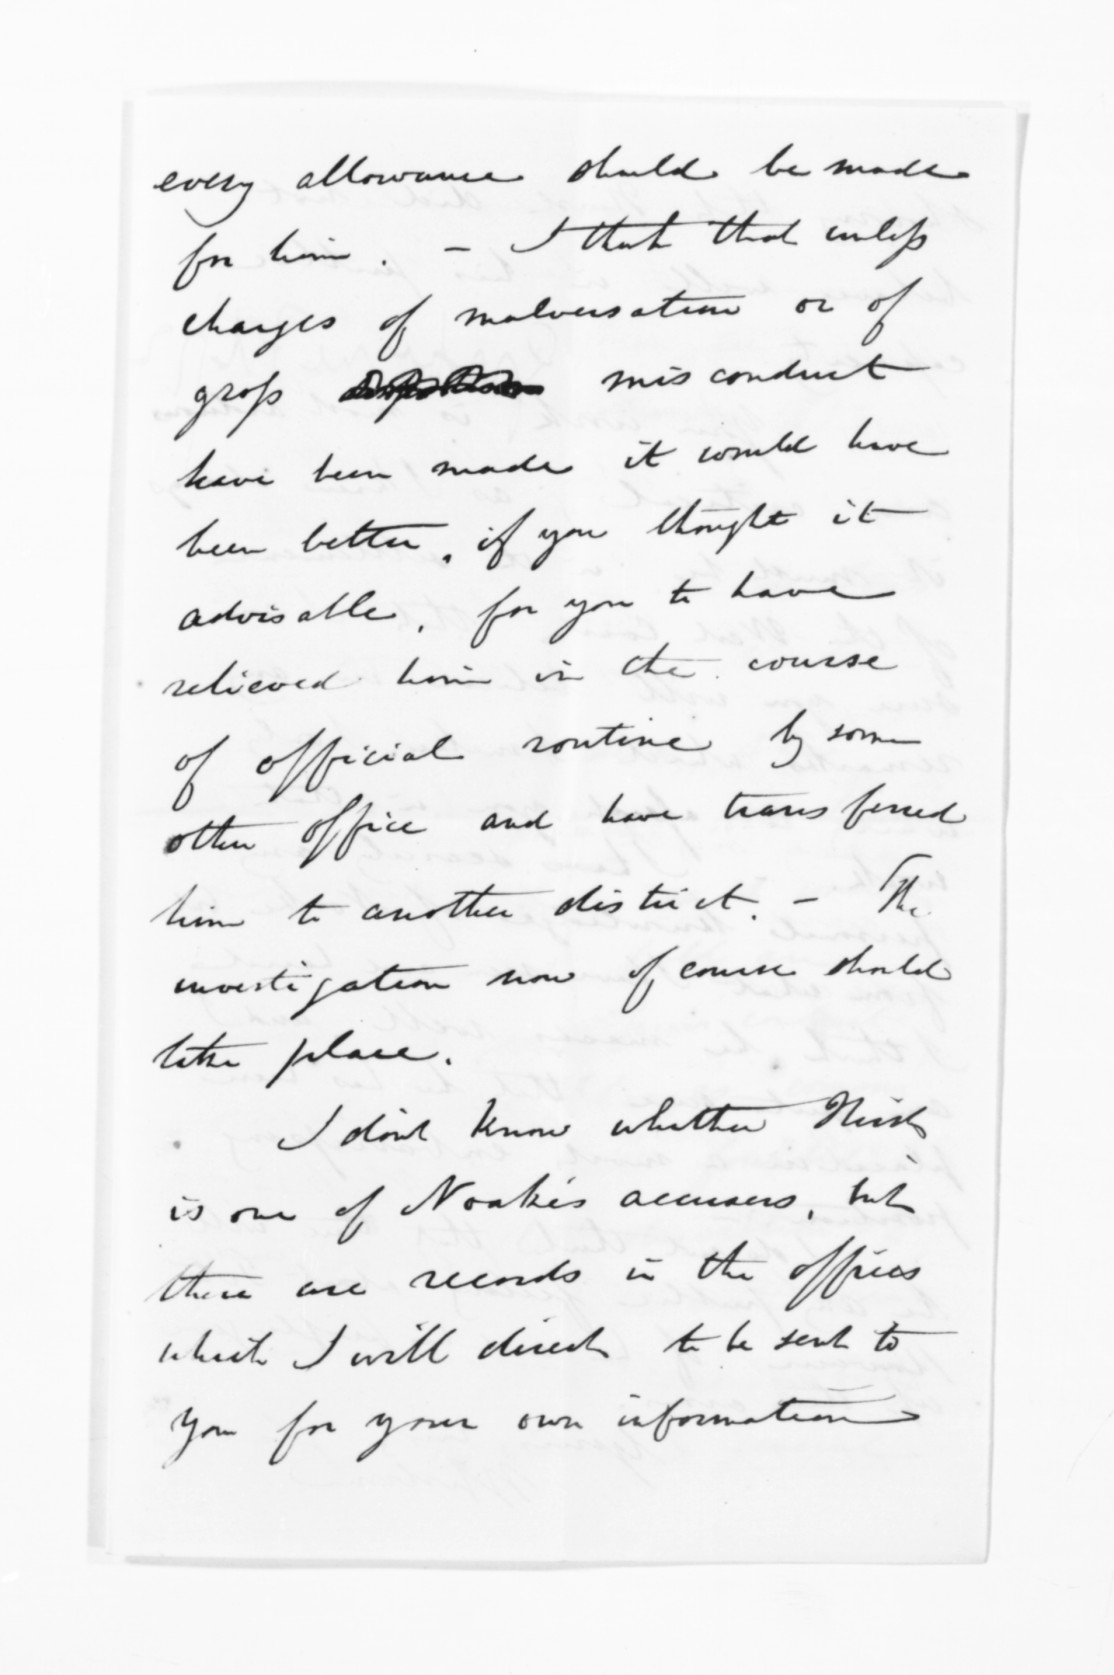 every allowance should be made
for him. - I think that unless
charges of malversation or of
gross misconduct
have been made it would have
been better, if you thought it
advisable, for you to have
relieved him in the course
of official routine by some
other office and have transferred
him to another district. - The
investigation now of course should
take place.
I don't know whether
is one of Noake's accusers, but
there are records in the offices
which I will direct to be sent to
you for your own information